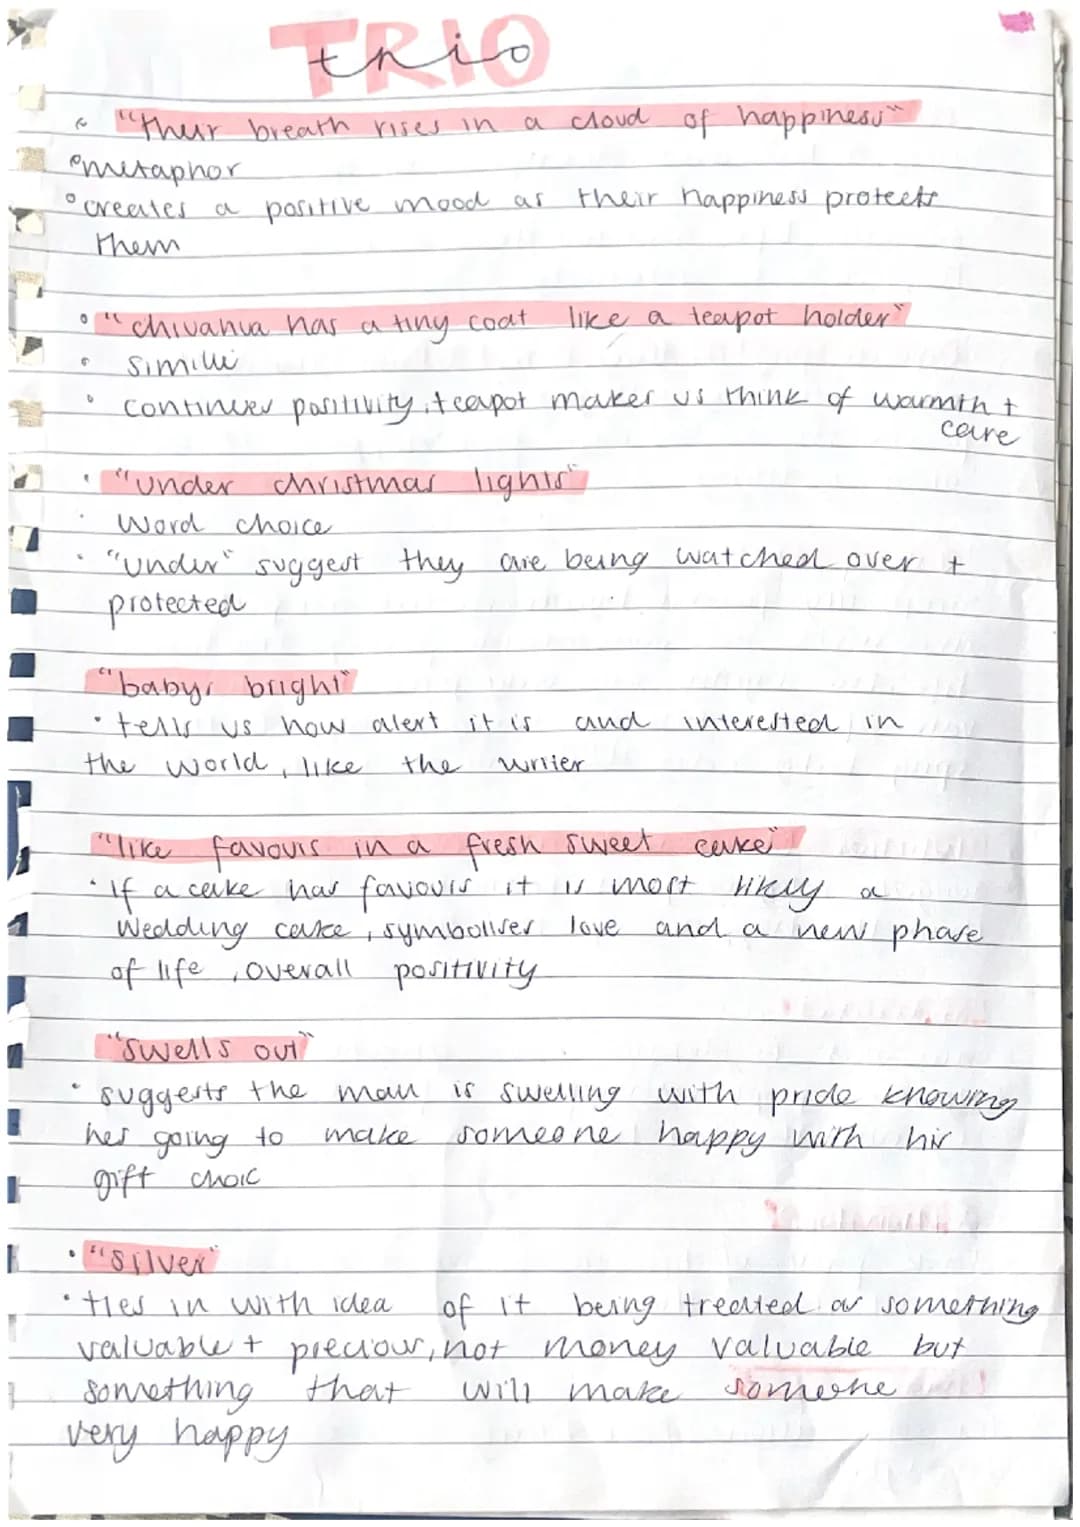 TRIO
trio
"their breath rises in a cloud of happiness"
metaphor
creates a positive mood as their happiness protects
them
"chiuahua has a tiny coat like a teapot holder"
simille
continues positivity, teapot makes us think of warmth +
care
"under christmas lights"
Word choice
"under" suggest they are being watched over +
protected
"babys bright"
tells us how alert it is and interested in
the world, like the writer
"like favours in a fresh sweet cake"
If a cake has favours it is most likly a
Wedding cake, symbolises love and a new phase
of life, overall positivity
"swells out"
suggests the man is swelling with pride knowing
hes going to make someone happy with his
gift choic
"silver"
ties in with idea of it being treated as something
valuable + precious, not money valuable but
something that will make someone
very happy